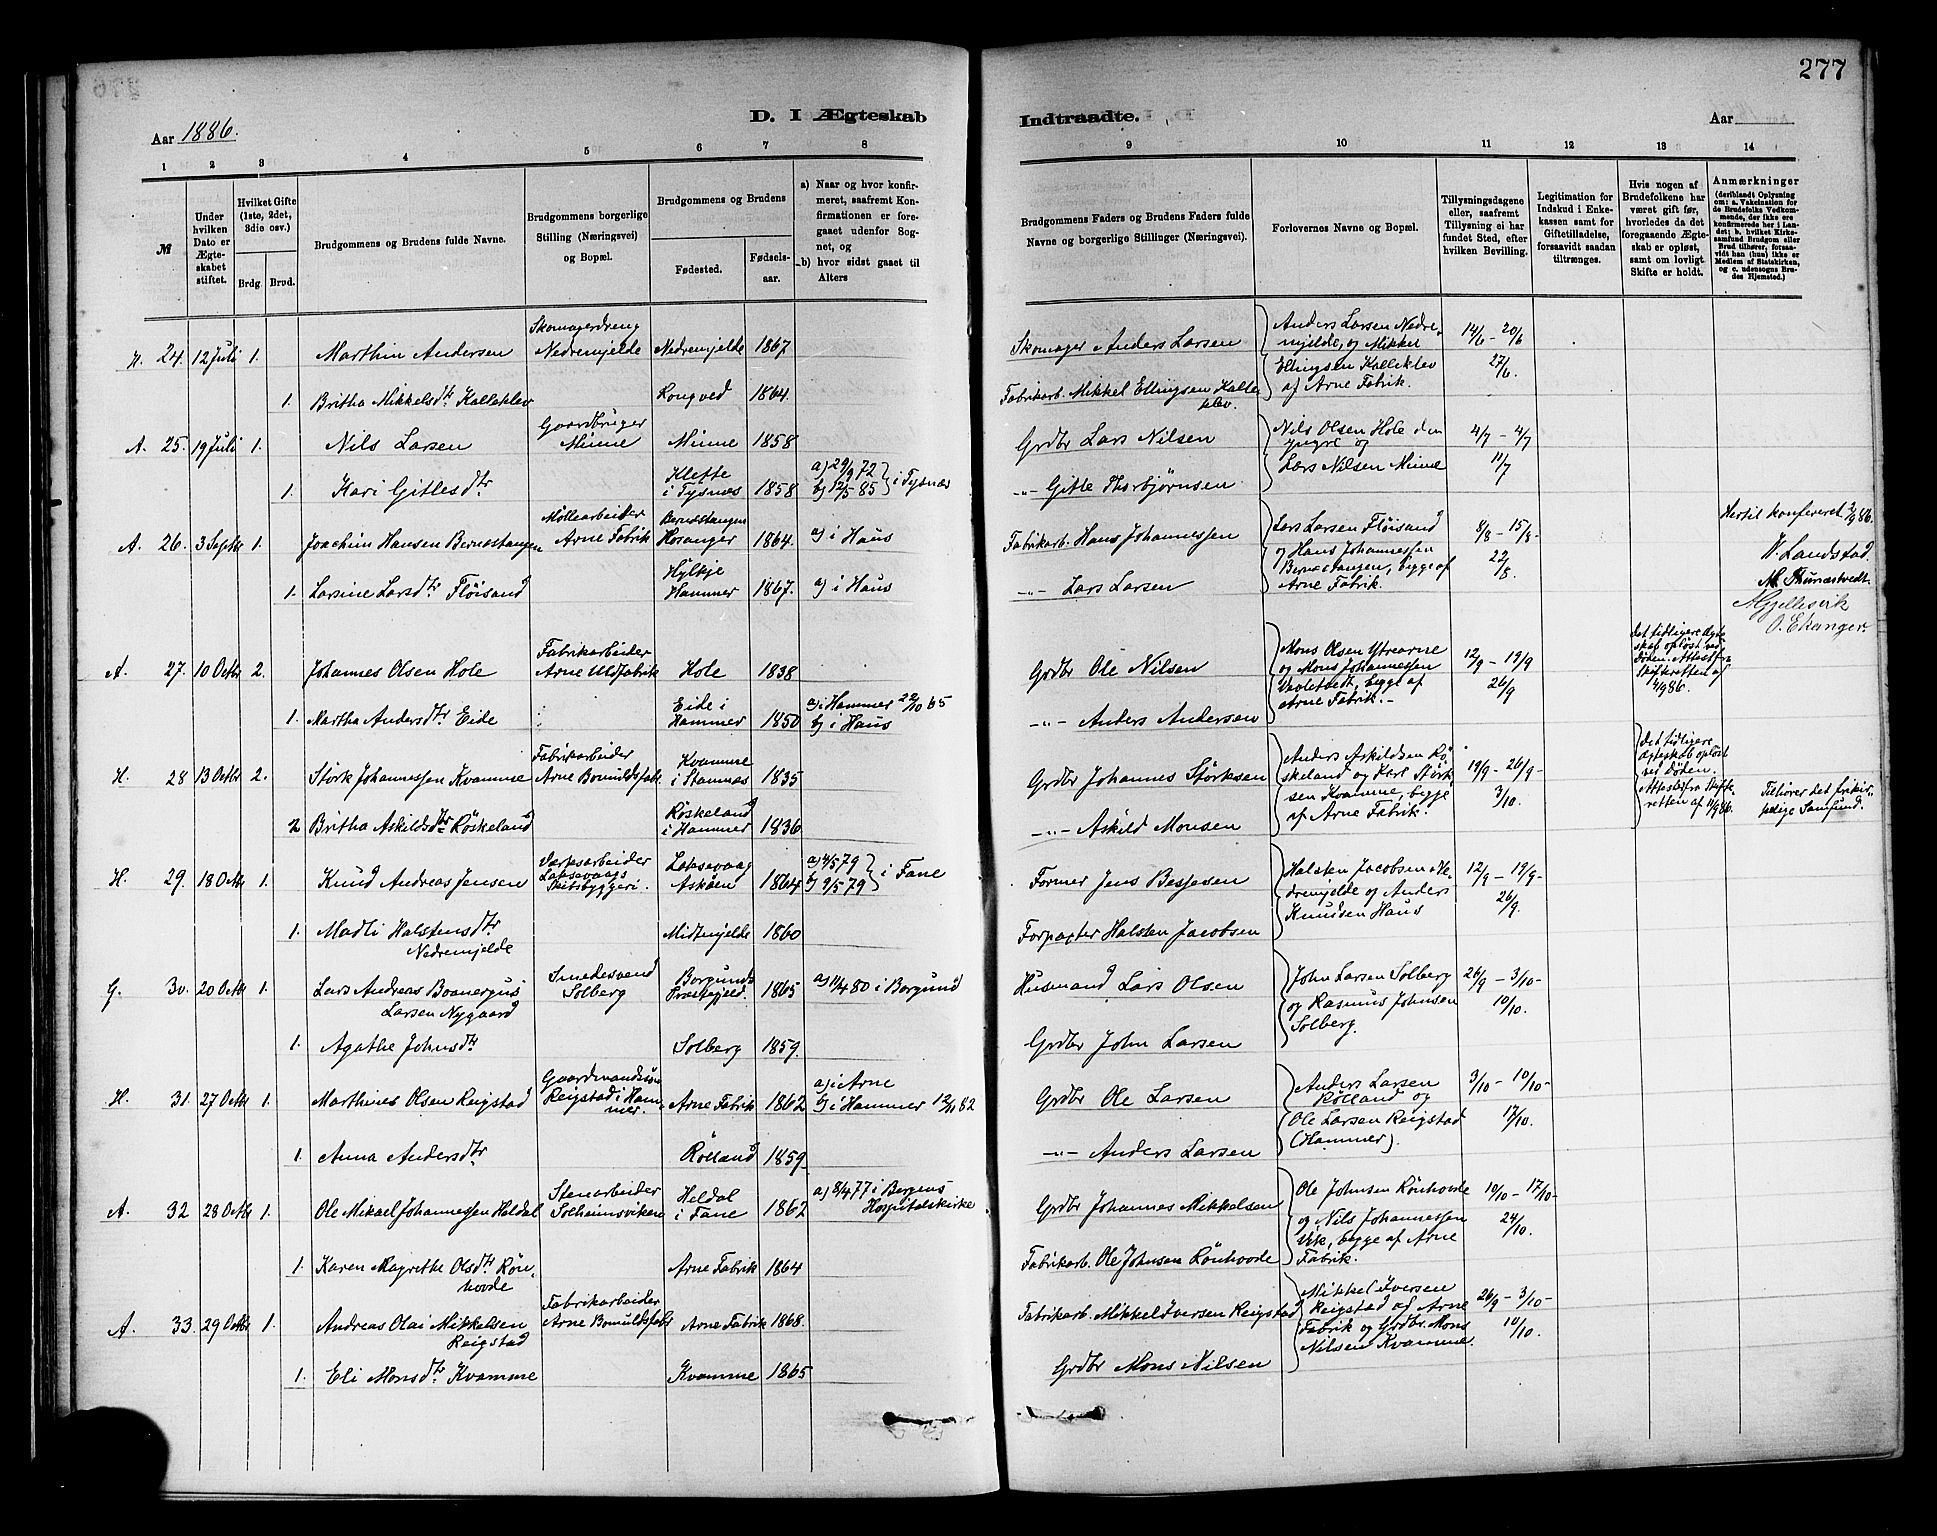 277
Aar 1886.
D. I Ægteskab
Indtraadte.
Aar
1 2 3 4 5 6 7 8 9 10 11 12 13 14
№
Under hvilken Dato er Ægteskabet stiftet.
Hvilket Gifte (1ste, 2det, 3die osv.)
Brdg. Brud.
Brudgommens og Brudens fulde Navne.
Brudgommens borgerlige Stilling (Næringsvei) og Bopæl.
Brudgommens og Brudens
Fødested.
Fødselsaar.
a) Naar og hvor konfirmeret, saafremt Konfirmationen er foregaaet udenfor Sognet, og
b) hvor sidst gaaet til Alters
Brudgommens Faders og Brudens Faders fulde Navne og borgerlige Stillinger (Næringsvei).
Forlovernes Navne og Bopæl.
Tillysningsdagene eller, saafremt Tillysning ei har fundet Sted, efter hvilken Bevilling.
Legitimation for Indskud i Enkekassen samt for Giftetilladelse, forsaavidt saadan tiltrænges.
Hvis nogen af Brudefolkene har været gift før, hvorledes da det foregaaende Ægteskab er opløst, samt om lovligt Skifte er holdt.
Anmærkninger (deriblandt Oplysning om: a. Vakcination for de Brudefolks Vedkommende, der ikke ere konfirmerede her i Landet; b. hvilket Kirkesamfund Brudgom eller Brud tilhører, forsaavidt han (hun) ikke er Medlem af Statskirken, og c. udensogns Brudes Hjemsted.)
H. 24. 12 Juli 1. Marthin Andersen Skomagerdreng Nedremjelde Nedremjelde 1867 Skomager Anders Larsen Anders Larsen Nedremjelde, og Mikkel Ellingsen Kalleklev af Arne Fabrik. 14/6 - 20/6 27/6.
1. Britha Mikkelsdtr Kalleklev Rongved 1864. Fabrikarb. Mikkel Ellingsen Kalleklev.
A. 25. 19 Juli 1. Nils Larsen Gaardbruger Minne Minne 1858 Grdbr Lars Nilsen Nils Olsen Hole den yngre og Lars Nilsen Minne 4/7 - 4/7 11/7
1. Kari Gitlesdtr Klefte i Tysnæs 1858 a) 29/9 72 b) 12/5 85 } i Tysnæs -"- Gitle Thorbjørnsen
A. 26. 3 Septbr 1. Joachim Hansen Bernestangen Møllearbeider Arne Fabrik Bernestangen Hosanger 1864. a) i Haus Fabrikarb. Hans Johannessen Lars Larsen Fløisand og Hans Johannessen Bernestangen, begge af Arne Fabrik. 8/8 - 15/8 - 22/8.
Hertil konfereret 2/9 86.
W. Landstad
M. Thunestvedt
A Gjellesvik
O. Ekanger.
1. Larsine Larsdtr Fløisand Hylkje Hammer 1867. a) i Haus -"- Lars Larsen
A. 27. 10 Octbr 2. Johannes Olsen Hole Fabrikarbeider Arne Uldfabrik Hole 1838 Grdbr Ole Nilsen Mons Olsen Ytrearne og Mons Johannessen begge af Arne Fabrik. - 12/9 - 19/9 26/9 Det tidligere Ægteskab opløst ved Døden. Attest fra Skifteretten af 4/9 86.
1. Martha Andersdtr Eide Eide i Hammer 1850 a) i Hammer 22/10 65 b) i Haus -"- Anders Andersen
H. 28 13 Octbr 2. Størk Johannessen Kvamme Fabrikarbeider Arne Bomuldsfabr. Kvamme i Stamnæs 1835 Grdbr Johannes Størksen Anders Askildsen Röskeland og Karl Størksen Kvamme, begge af Arne Fabrik. 19/9 - 26/9 - 3/10. Det tidligere Ægteskab opløst ved Døden. Attest fra Skifteretten af 11/9 86. Tilhører det frikirkelige Samfund.
2 Britha Askildsdtr Röskeland Röskeland i Hammer 1836 -"- Askild Monsen
H. 29. 18 Octbr 1. Knud Andreas Jensen Værksarbeider Laksevaags Skibsbyggeri. Laksevaag Askøen 1864 a) 4/5 79 b) 9/5 79 } i Fane Former Jens Bessesen Halsten Jacobsen Nedremjelde og Anders Knudsen Haus 12/9 - 19/9 - 26/9.
1. Madli Halstensdtr Nedremjelde Midtmjelde 1860 Forpagter Halsten Jacobsen
G. 30. 20 Octbr 1. Lars Andreas Boanergus Larsen Nygaard Smedesvend Solberg Borgunds Præstegjeld. 1865 a) 11/4 80 i Borgund Husmand Lars Olsen John Larsen Solberg og Rasmus Johnsen Solberg. 26/9 - 3/10 - 10/10.
1. Agathe Johnsdtr Solberg 1859. Grdbr John Larsen
H. 31. 27 Octbr 1. Marthines Olsen Reigstad Gaardmandssøn Reigstad i Hammer. Arne Fabrik 1862 a) i Arne b) i Hammer 12/11 82 Grdbr Ole Larsen Anders Larsen Rölland og Ole Larsen Reigstad (Hammer). 3/10 - 10/10 - 17/10.
1. Anna Andersdtr Rölland 1859. -"- Anders Larsen
A. 32 28 Octbr 1. Ole Mikael Johannessen Heldal Stenarbeider Solheimsviken Heldal i Fane 1862 a) 8/4 77 i Bergens Hospitalskirke Grdbr Johannes Mikkelsen Ole Johnsen Rönhovde og Nils Johannessen Vik, begge af Arne Fabrik. 10/10 - 17/10 - 24/10.
1. Karen Magrethe Olsdtr Rönhovde Arne Fabrik 1864 Fabrikarb. Ole Johnsen Rönhovde
A. 33. 29 Octbr 1. Andreas Olai Mikkelsen Reigstad Fabrikarbeider Arne Bomuldsfabr Arne Fabrik 1868. Fabrikarb. Mikkel Iversen Reigstad Mikkel Iversen Reigstad af Arne Fabrik og Grdbr. Mons Nilsen Kvamme. 26/9 - 3/10 - 10/10.
1. Eli Monsdtr Kvamme Kvamme 1865 Grdbr Mons Nilsen